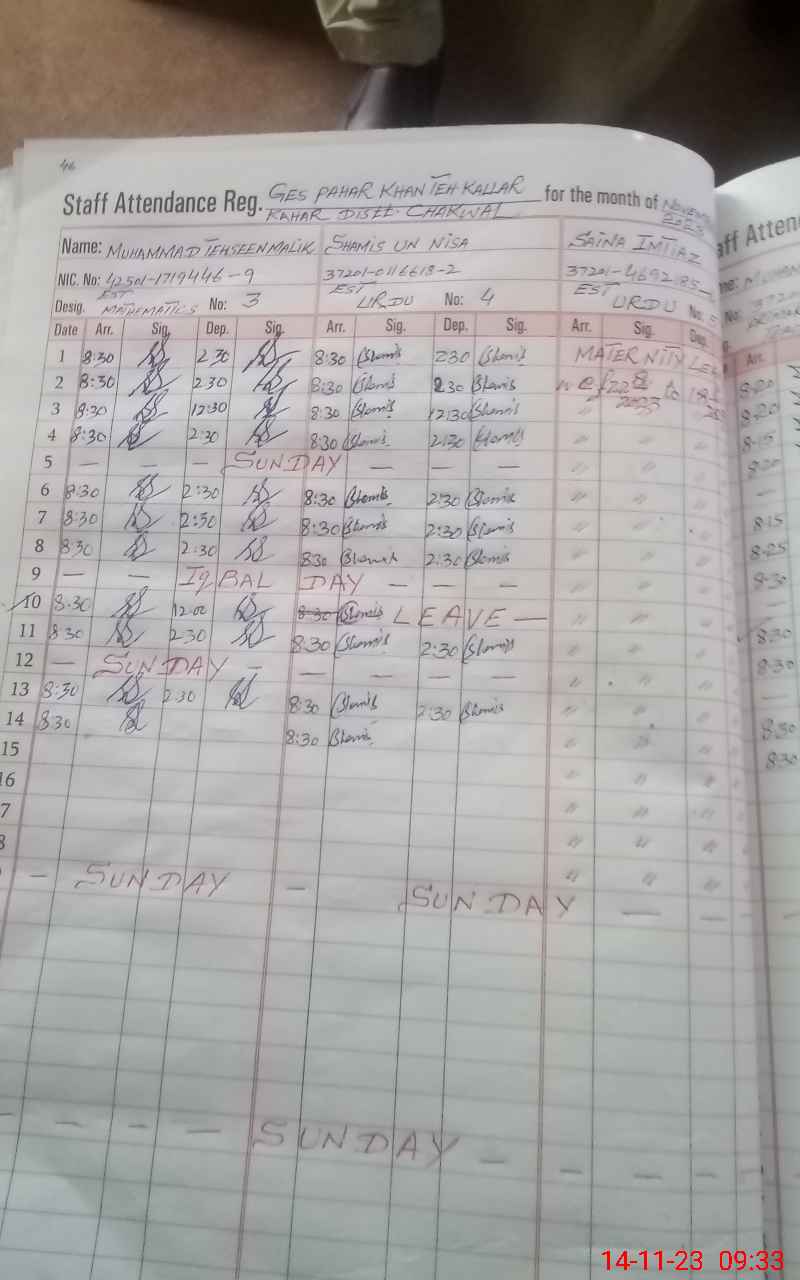 46
Staff Attendance Reg. GES PAHAR KHAN TEH KALLAR KAHAR DISTT. CHAKWAL for the month of
Name: MUHAMMAD TEHSEEN MALIK SHAMIS UN NISA SAINA IMTIAZ
NIC. No: 42501-1719446-9 37201-0116618-2 37201-4692185-
Desig. EST MATHEMATICS No: 3 EST URDU No: 4 EST URDU No:
Date Arr. Sig. Dep. Sig. Arr. Sig. Dep. Sig. Arr. Sig. Dep.
1 8:30 2 30 8:30 Shamis 230 Shamis MATERNITY
2 8:30 2 30 8:30 Shamis 2 30 Shamis
3 8:30 12:30 8:30 Shamis 12:30 Shamis " "
4 8:30 2:30 8:30 Shamis 2:30 Shamis " " "
5 — — — SUNDAY — — — " " "
6 8:30 2:30 8:30 Shamis 2:30 Shamis " " "
7 8:30 2:30 8:30 Shamis 2:30 Shamis " " "
8 8:30 2:30 830 Shamis 2:30 Shamis " " "
9 — — IQBAL DAY — — — " " "
10 8:30 12:00 8:30 Shamis LEAVE — " " "
11 8 30 2 30 8:30 Shamis 2:30 Shamis " " "
12 — SUNDAY — — — — — " " "
13 8:30 2 30 8:30 Shamis 2:30 Shamis " " "
14 8:30 8:30 Shamis " " "
15 " " "
16 " " "
7 " " "
8 " " "
— SUNDAY — SUNDAY — — —
— — — — SUNDAY — — — —
aff Atten
Arr.
8-20
8-20
8-15
8:20
—
8:15
8:25
8:30
—
8:30
8:30
—
8:30
8:30
14-11-23 09:33